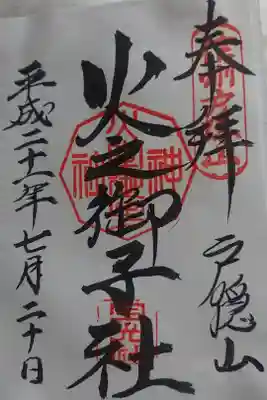 奉拝
戸隠山
火之御子社
平成二十一年七月二十日